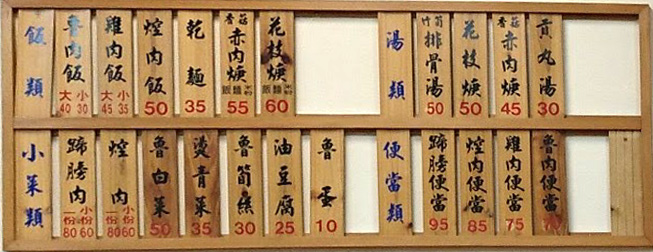 飯類
魯肉飯 大40 小30
雞肉飯 大45 小35
焢肉飯 50
乾麵 35
香菇赤肉焿 飯麵米粉 55
花枝焿 飯麵米粉 60
湯類
竹筍排骨湯 50
花枝焿 50
香菇赤肉焿 45
貢丸湯 30
小菜類
蹄膀肉 一份80 小份60
焢肉 一份80 小份60
魯白菜 50
燙青菜 35
魯筍絲 30
油豆腐 25
魯蛋 10
便當類
蹄膀便當 95
焢肉便當 85
雞肉便當 75
魯肉便當